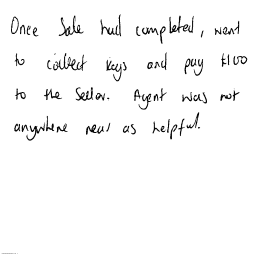 Once Sale had completed, went
to collect keys and pay £100
to the Seller. Agent was not
anywhere near as helpful.